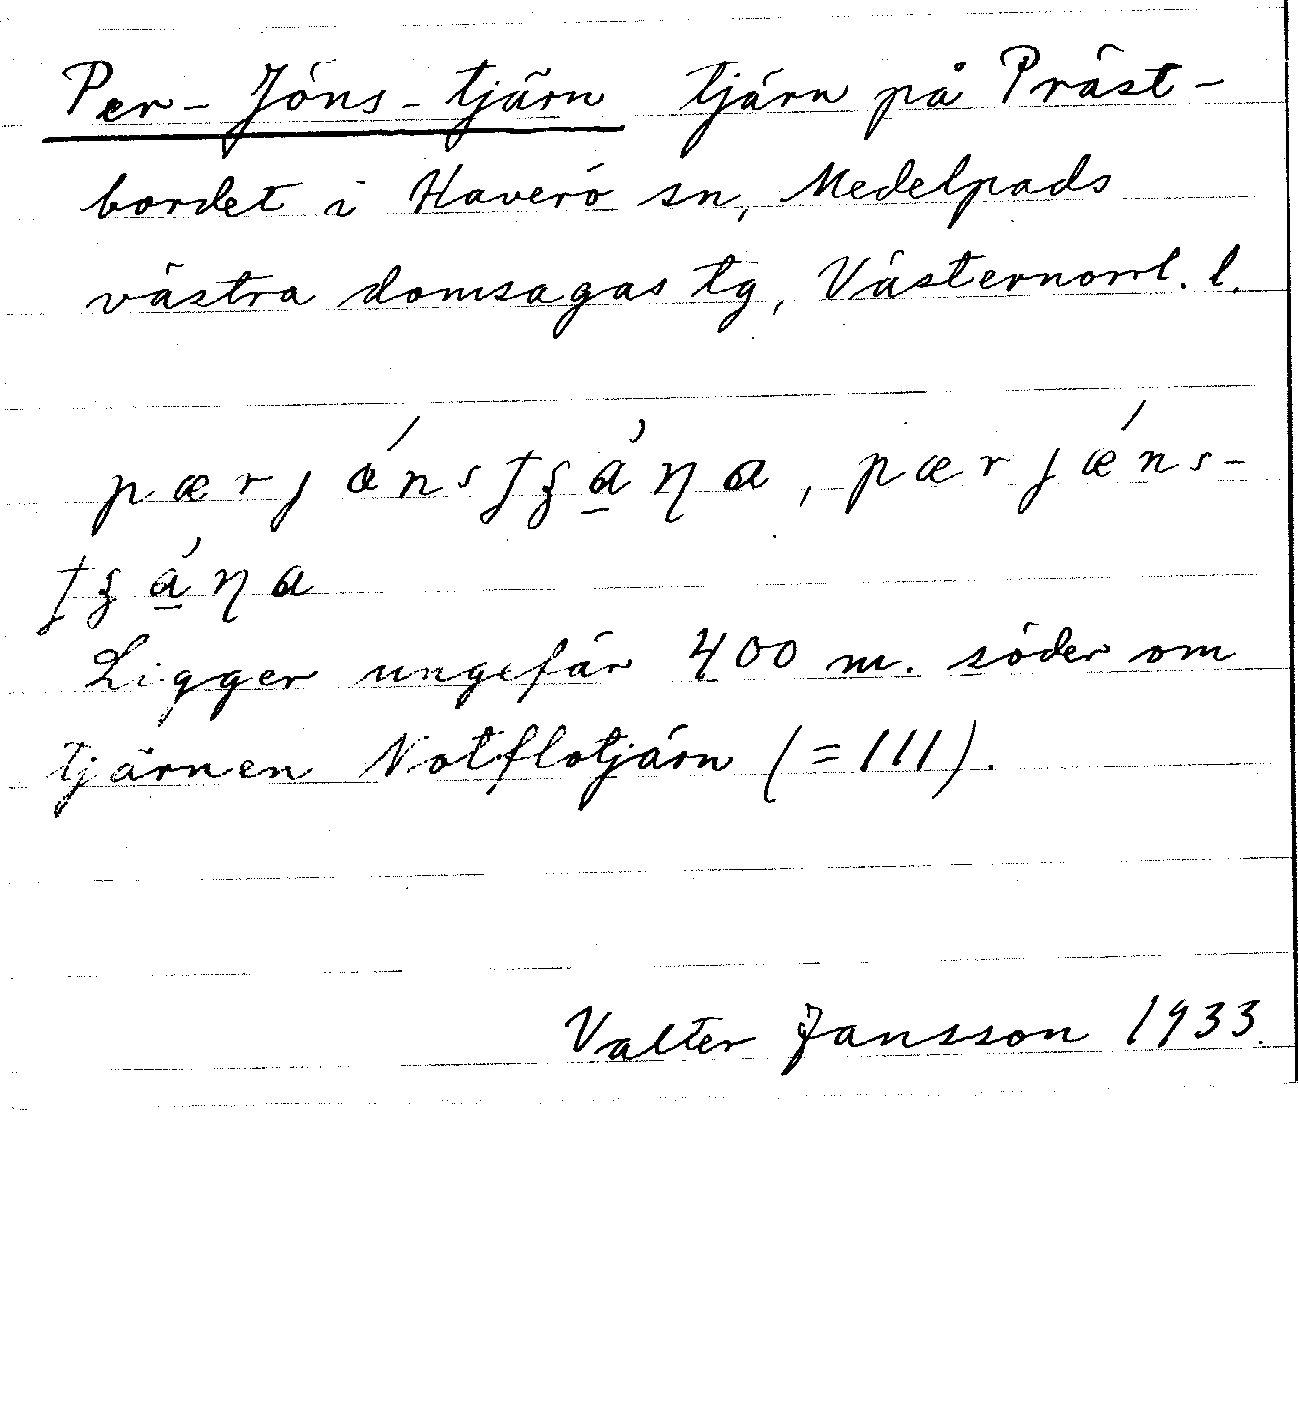 Per-Jöns-tjärn tjärn på Präst-
bordet i Haverö sn, Medelpads
västra domsagas tg, Västernorrl. l.
Ligger ungefär 400 m. söder om
tjärnen Notflotjärn (=111).
Valter Jansson 1933.